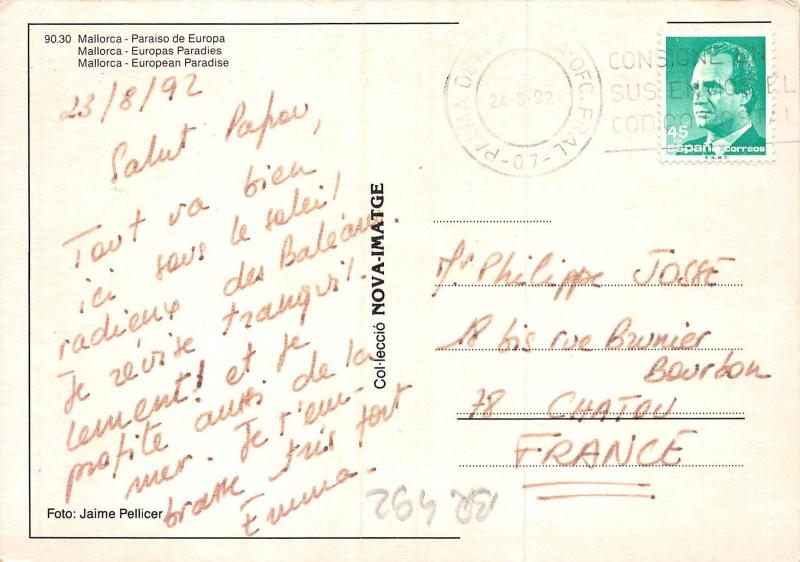 90.30 Mallorca - Paraiso de Europa
Mallorca - Europas Paradies
Mallorca - European Paradise
23/8/92
Salut Papou,
Tout va bien
ici sous le soleil
radieux des Baléares.
Je révise tranquil-
lement! et je
profite aussi de la
mer. Je t'em-
brasse très fort
Emma.
Foto: Jaime Pellicer
Col·lecció NOVA-IMATGE
PALMA OFC. PRAL -07-
24-8-92
CONSIGNE EN
SUS EN EL
CODIGO POSTAL
45
españa correos
F.N.M.T.
Mr Philippe JOSSE
18 bis rue Brunier
Bourbon
78 CHATOU
FRANCE
BR 492